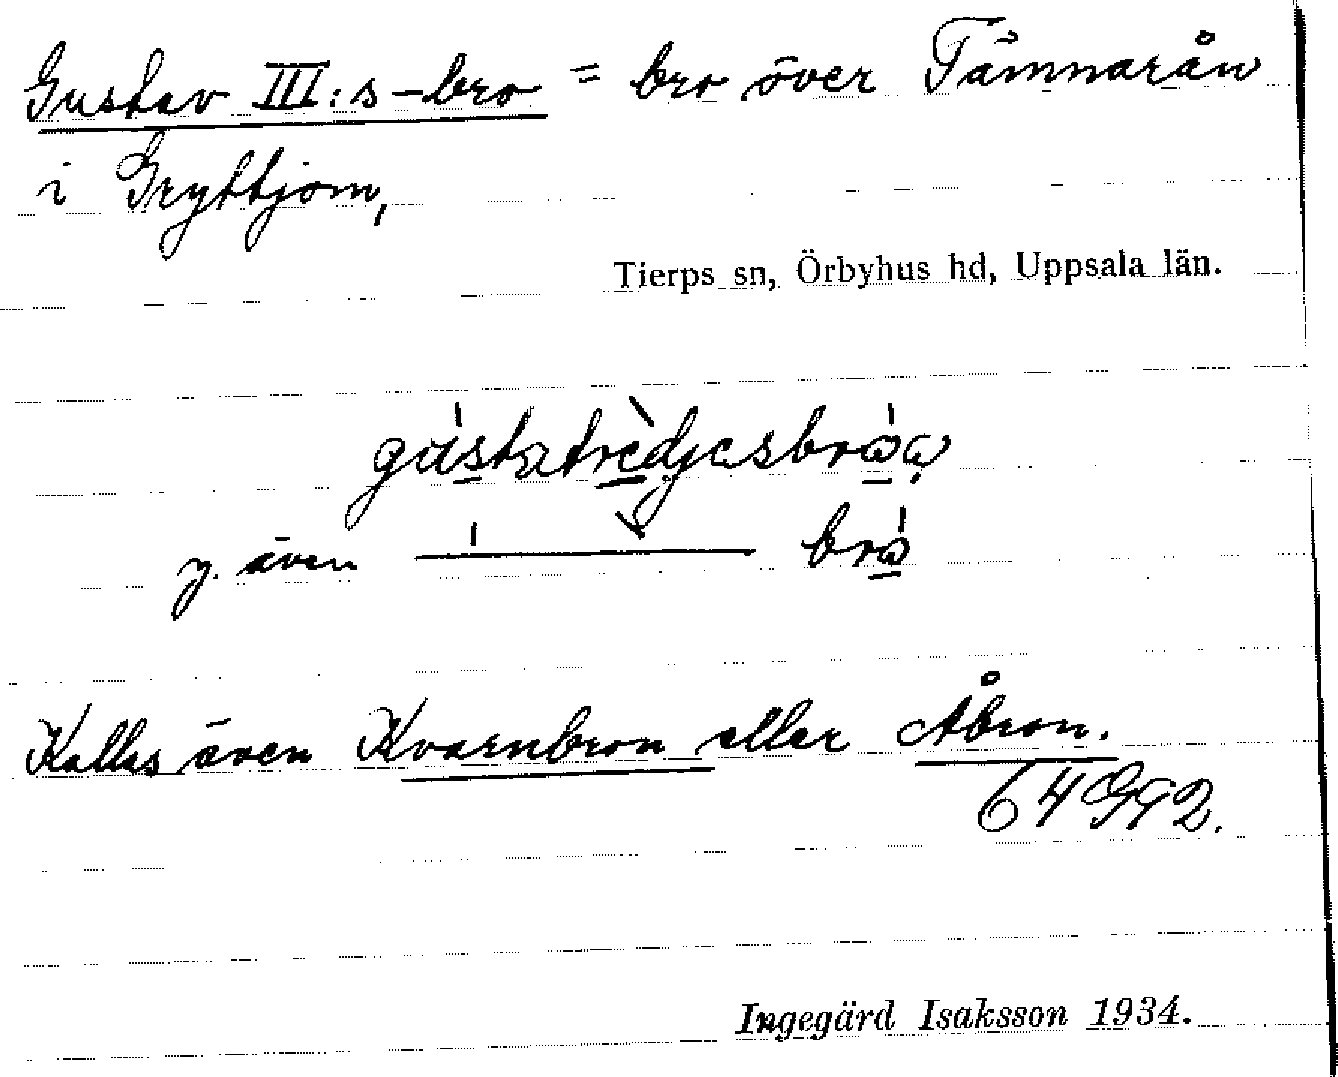 Gustav III:s-bro = bro över Tämnarån
i Gryttjom,
Tierps sn, Örbyhus hd, Uppsala län.
y. även
Kallas även Kvarnbron eller Åbron.
Ingegärd Isaksson 1934.